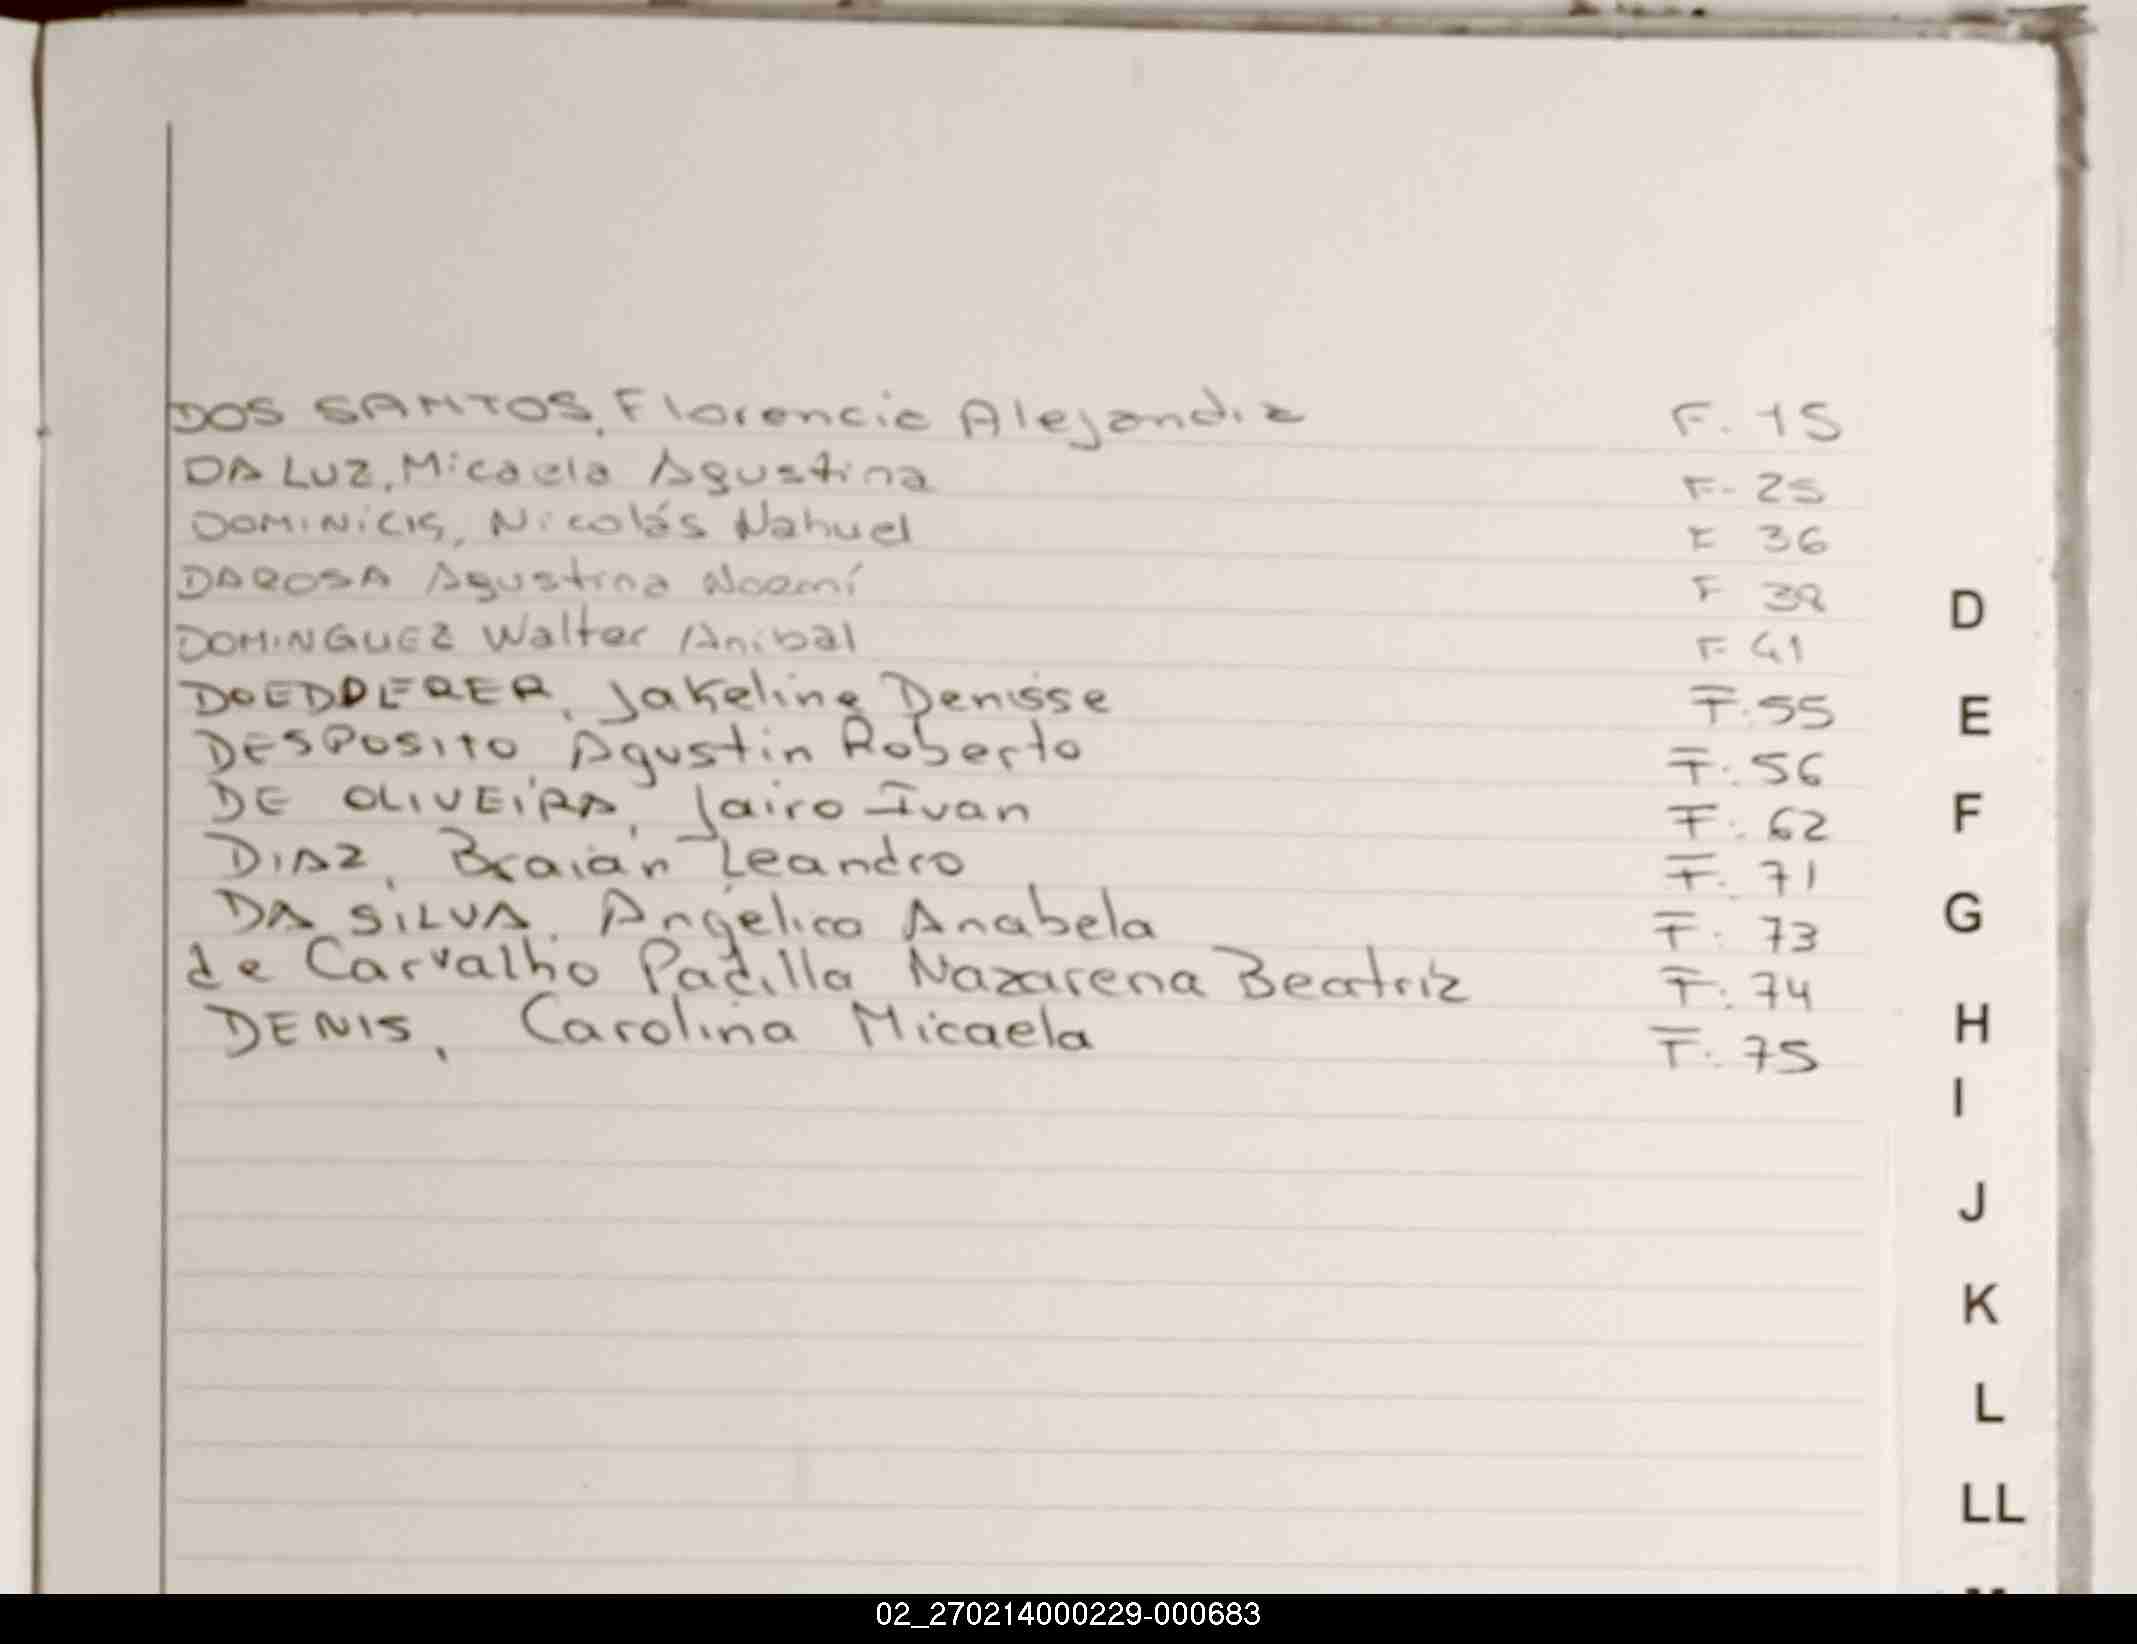 DOS SANTOS, Florencia Alejandra F. 15
DA LUZ, Micaela Agustina F. 25
DOMINICIS, Nicolás Nahuel F 36
DAROSA Agustina Noemí F
DOMINGUEZ Walter Anibal F 41
DOEDDERER, Jakeline Denisse F. 55
DESPOSITO Agustin Roberto F. 56
DE OLIVEIRA, Jairo Ivan F. 62
DIAZ, Braian Leandro F. 71
DA SILVA, Angélica Anabela F. 73
de Carvalho Padilla Nazarena Beatriz F. 74
DENIS, Carolina Micaela F. 75
D
E
F
G
H
I
J
K
L
LL
02_270214000229-000683